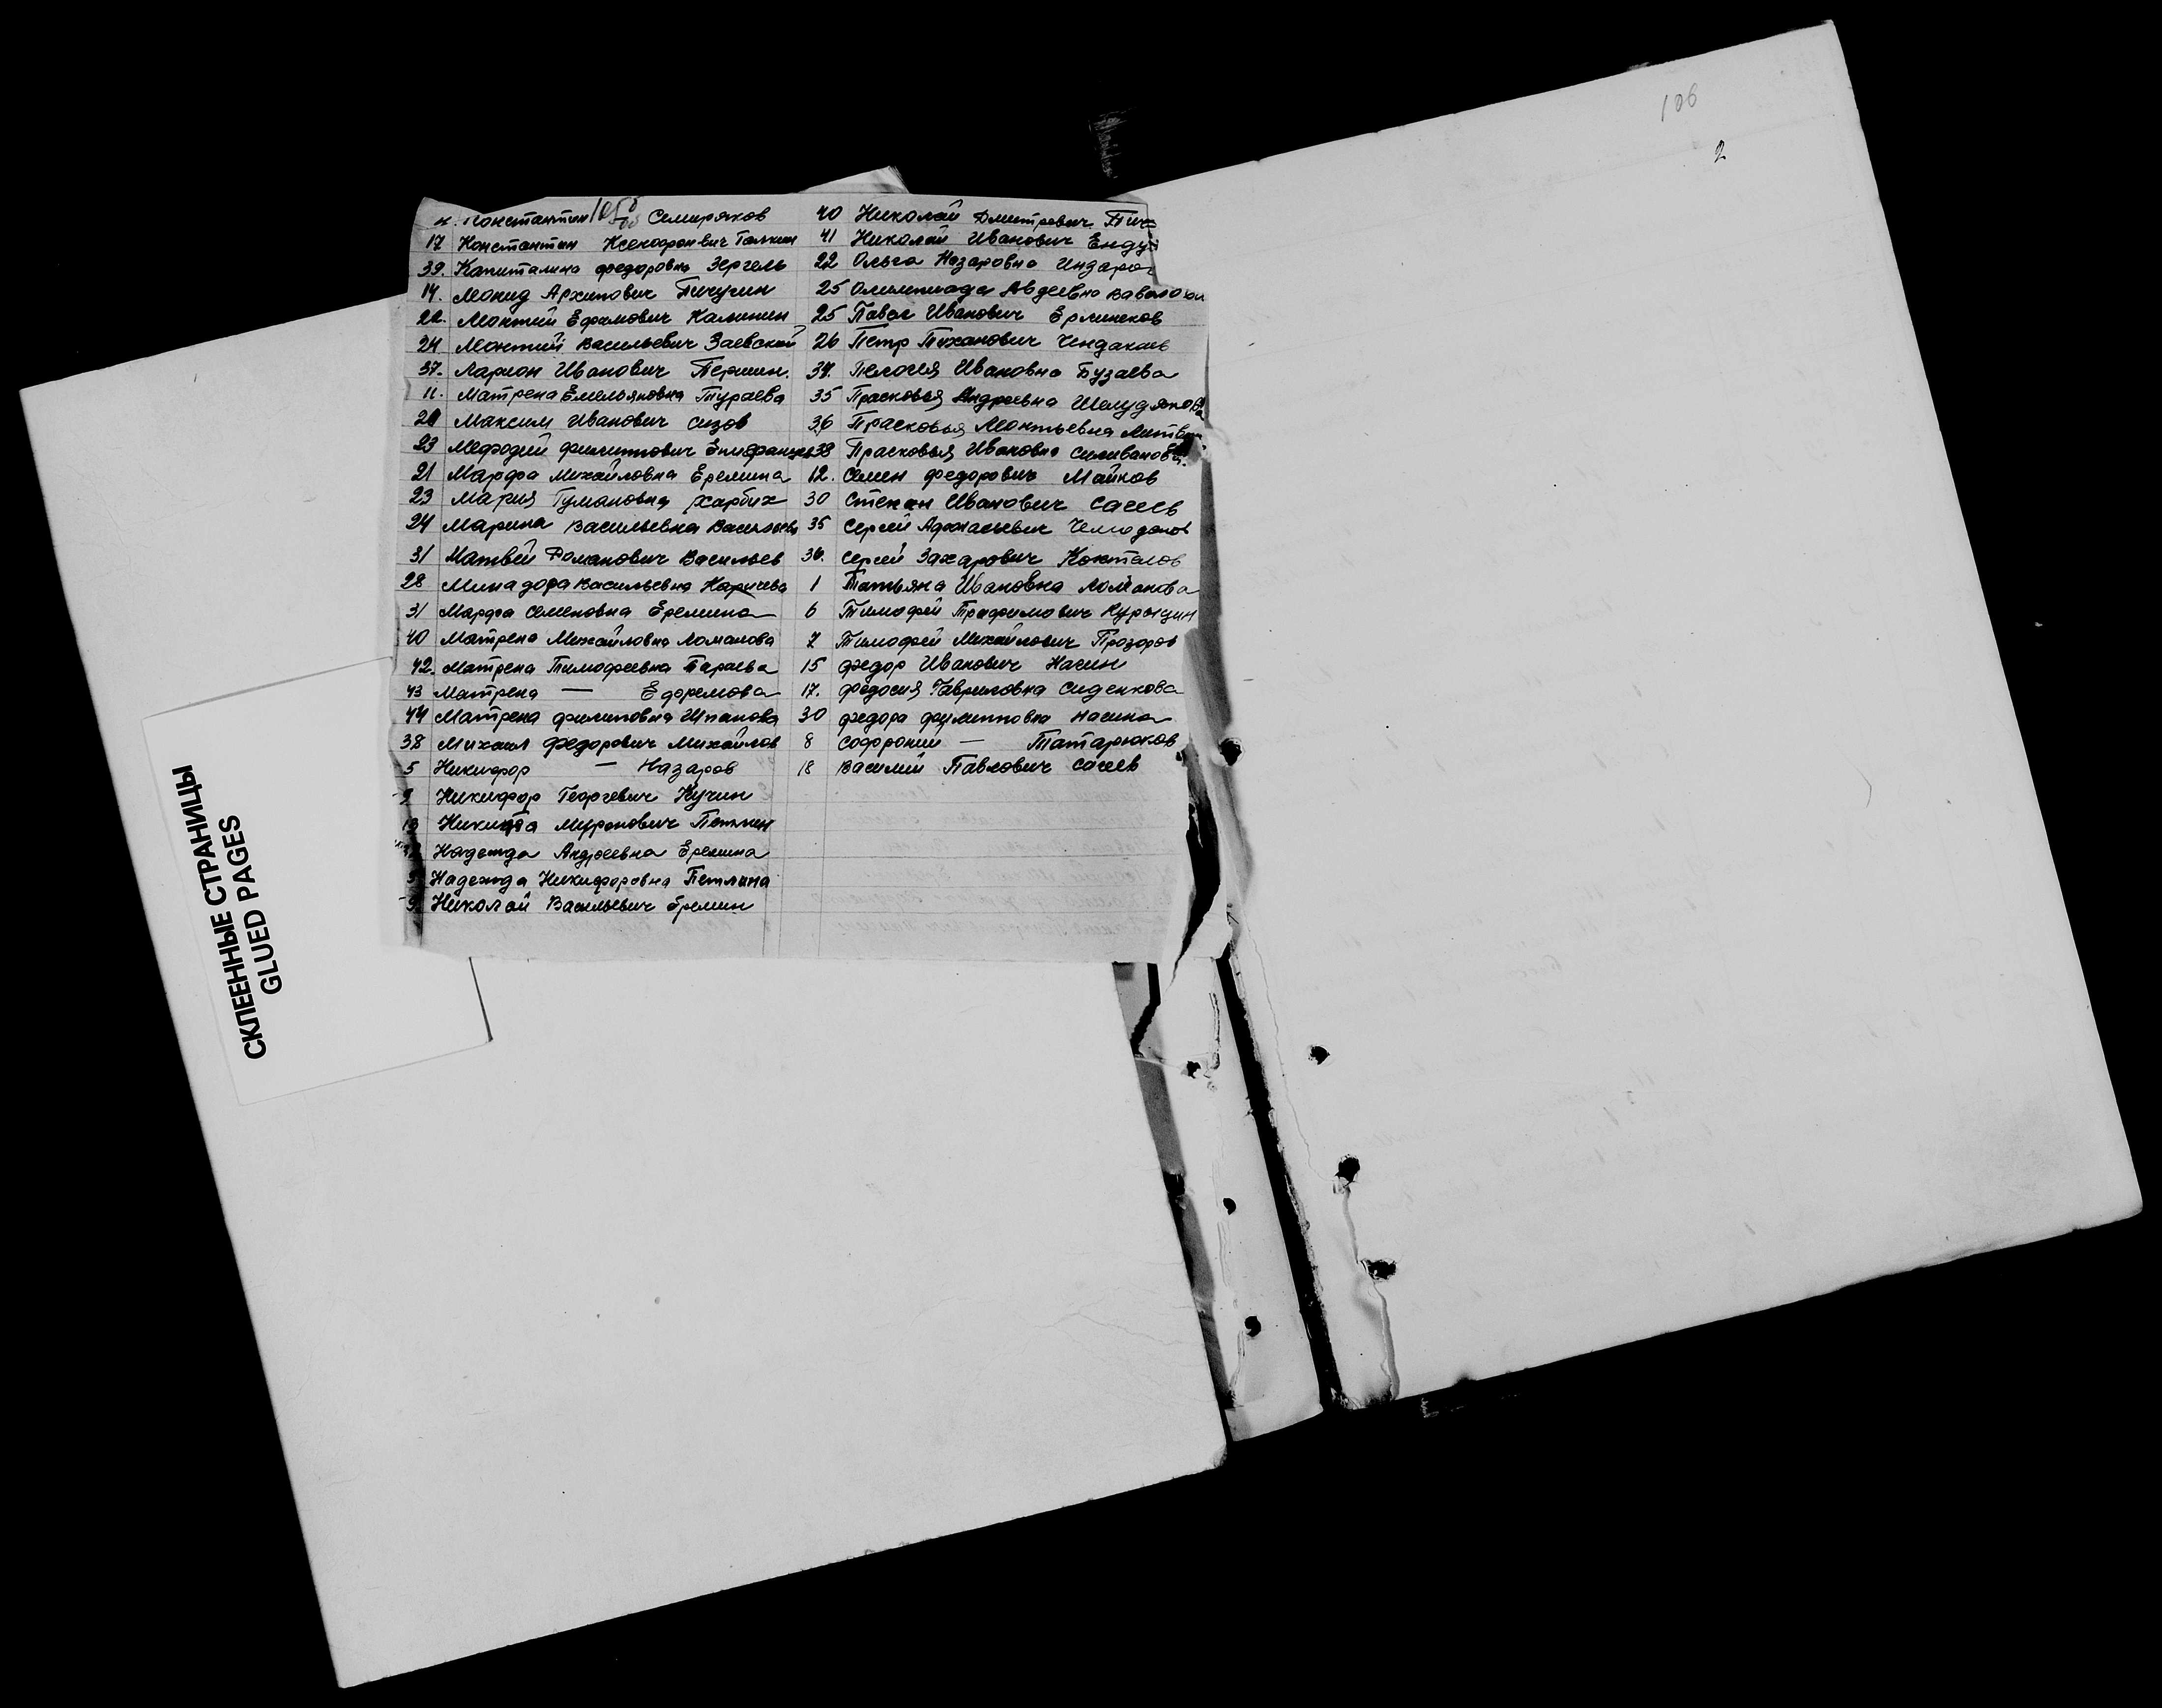 106
2
н. Константин 105об Семиряков
17 Константин Ксенофонвич Галкин
39. Капиталина Федоровна Зергель
14. Леонид Архипович Пичугин
22. Леонтий Ефимович Калинин
24 Леонтий Васильевич Заевский
37. Ларион Иванович Першин.
11. Матрена Емельяновна Тураева
20 Максим Иванович Сизов
23 Мефодий Филиппович
21 Марфа Михайловна Еремина
23 Мария Тумановна Харбих
24 Марина Васильевна Васильева
31 Матвей Романович Васильев
28 Минадора Васильевна Карпева
31 Марфа Семеновна Еремина
40 Матрена Михайловна Ломанова
42. Матрена Тимофеевна Тараева
43 Матрена — Ефремова
44 Матрена Филиповна Шпанова
38 Михаил Федорович Михайлов
5 Никифор — Назаров
9 Никифор Георгевич Кучин
13 Никита Миронович Петлин
Надежда Андреевна Еремина
Надежда Никифоровна Петлина
Николай Васильевич Еремин
40 Николай Дмитревич Пич
41 Николай Иванович Енду
22 Ольга Назаровна Индаро
25 Олимпиада Авдеевна Вавилова
25 Павел Иванович Ерминеков
26 Петр Тиханович Чендакаев
34. Пелогея Ивановна Бузаева
35 Прасковья Андреевна Шелудякова
36 Прасковья Леонтьевна Литвин
38 Прасковья Ивановна Силиванова.
12. Семен Федорович Майков
30 Степан Иванович Сагеев
35 Сергей Афанасьевич Чемоданов
36. Сергей Захарович Коктелов
1 Татьяна Ивановна Ломанова
6 Тимофей Трафимович Курынцин
7 Тимофей Михайлович Прозоров
15 Федор Иванович Насин
17. Федосия Гавриловна Сиденкова
30 Федора Филипповна Насина
8 Софроний — Татарюков
18 Василий Павлович Сагеев
СКЛЕЕННЫЕ СТРАНИЦЫ
GLUED PAGES